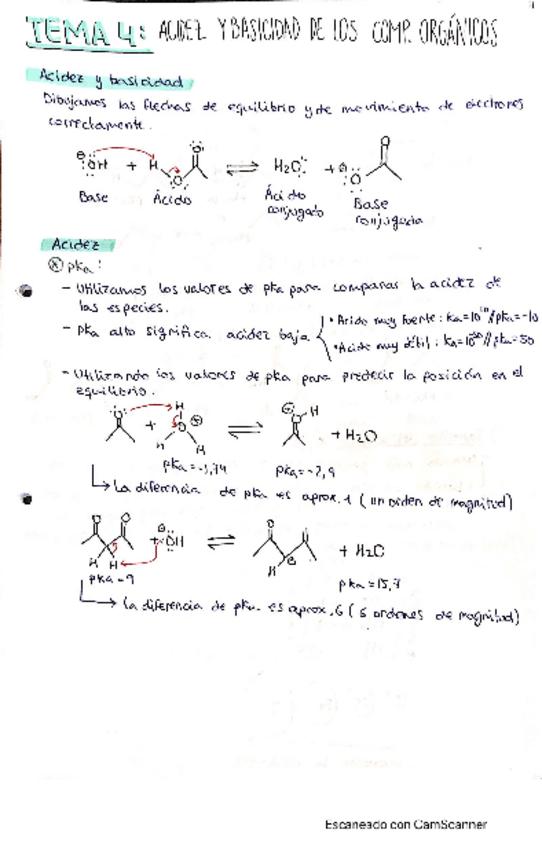 TEMA 4: ACIDEZ Y BASICIDAD DE LOS COMP. ORGÁNICOS
Acidez y basicidad
Dibujamos las flechas de equilibrio y de movimiento de electrones
correctamente.
⊖ :ÖH + H O O ⇌ H₂O: + ⊖ :O: O
Base Ácido Ácido conjugado Base conjugada
Acidez
pka:
- Utilizamos los valores de pka para comparar la acidez de
las especies.
- Pka alto significa acidez baja
• Acido muy fuerte: ka=10¹⁰//pka=-10
• Acido muy débil: ka=10⁻⁵⁰//pka=50
- Utilizando los valores de pka para predecir la posición en el
equilibrio.
O + H O ⊕ H H ⇌ ⊕ O H + H₂O
pka=-1,74 pka=-2,9
La diferencia de pka es aprox. 1 (un orden de magnitud)
O O H H + ⊖ :ÖH ⇌ O H ⊖ + H₂O
pka=9 pka=15,7
La diferencia de pka es aprox. 6 (6 ordenes de magnitud)
Escaneado con CamScanner